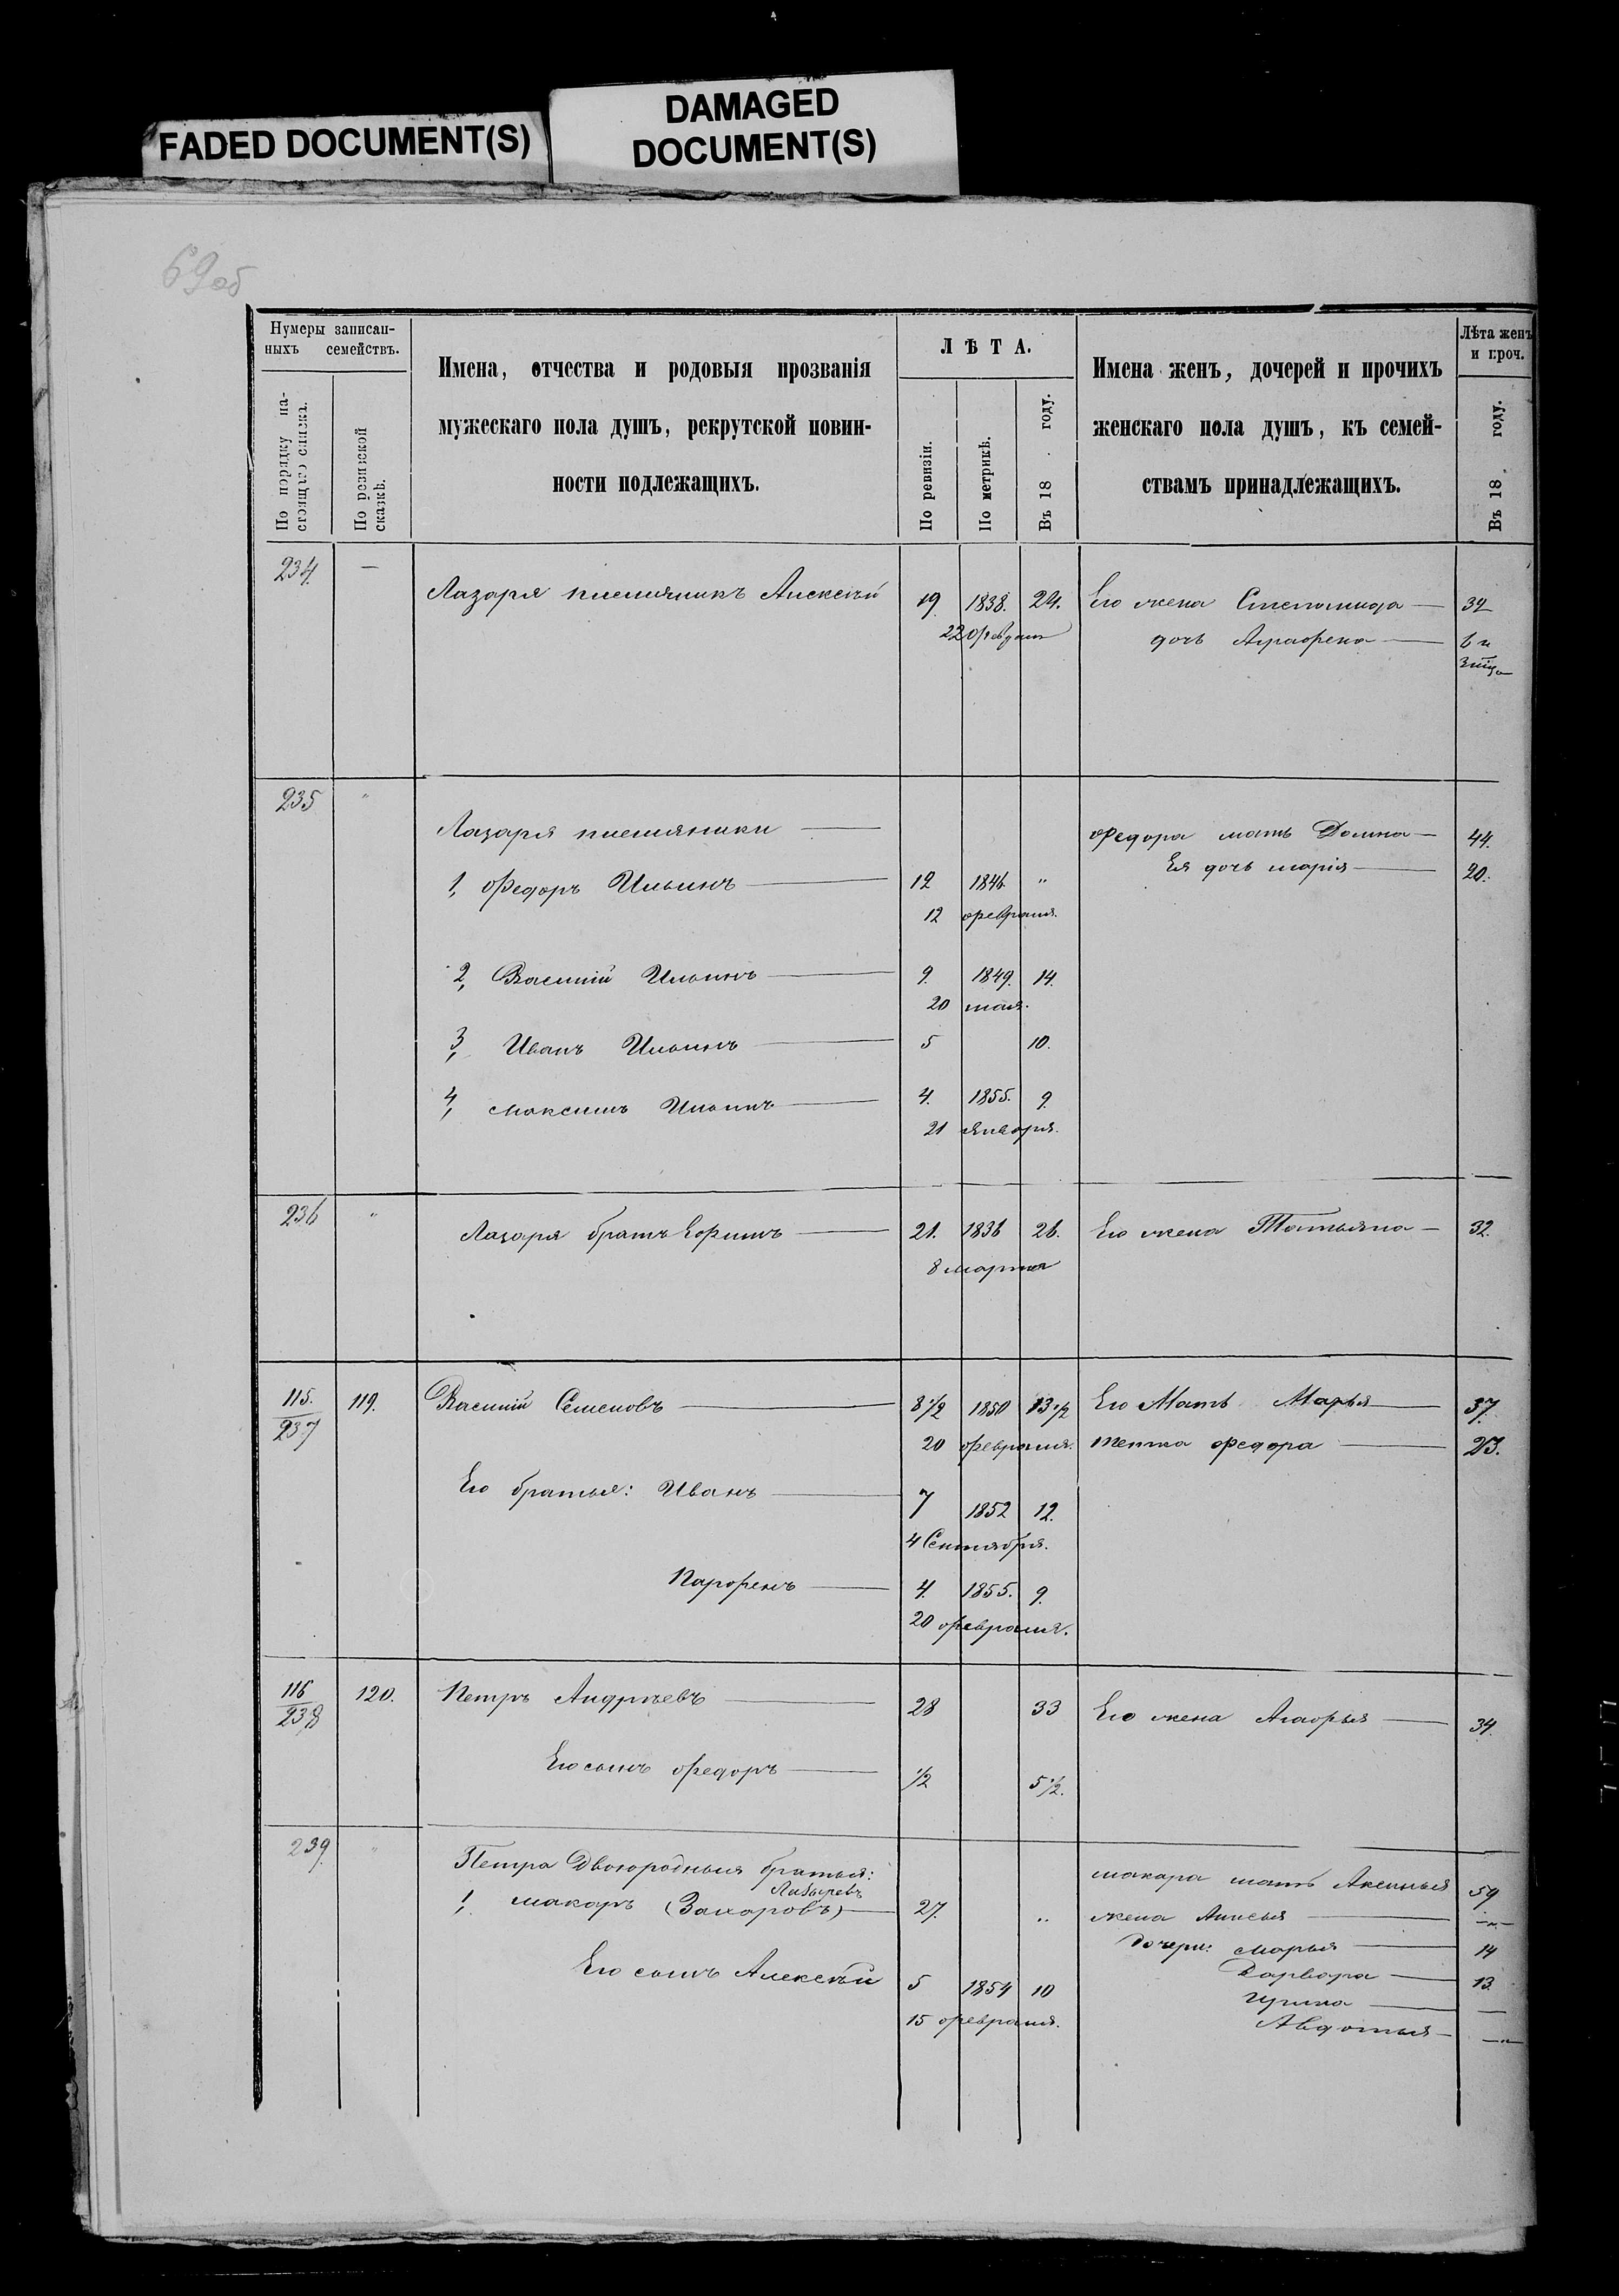 FADED DOCUMENT(S)
DAMAGED
DOCUMENT(S)
69 об
Нумеры записан-
ныхъ семействъ.
По порядку на-
стоящаго списка.
По ревизской
сказкѣ.
Имена, отчества и родовыя прозванія
мужескаго пола душъ, рекрутской повин-
ности подлежащихъ.
ЛѢТА.
По ревизіи.
По метрикѣ.
Въ 18 . году.
Имена женъ, дочерей и прочихъ
женскаго пола душъ, къ семей-
ствамъ принадлежащихъ.
Лѣта женъ
и проч.
Въ 18 . году.
234. — Лазаря племянникъ Алексѣй 19. 1838. 24. Его жена Степанида — 32
22 февраля дочь Аграфена — 6 и
3 мѣс.
235 " Лазаря племяники — Федора мать Домна — 44.
Ея дочь Марія — 20.
1, Федоръ Ильинъ — 12 1846 "
12 февраля.
2, Василій Ильинъ — 9. 1849. 14.
20 мая.
3, Иванъ Ильинъ — 5 10.
4, Максимъ Ильинъ — 4. 1855. 9.
21 Января.
236 " Лазаря братъ Ефимъ — 21. 1836 26. Его жена Татьяна — 32.
8 марта
115. 119. Василій Семеновъ — 8 1/2 1850 13 1/2 Его Мать Марья — 37.
237 20 февраля. тетка Федора — 23.
Его братья: Иванъ — 7 1852 12.
4 Сентября.
Парфенъ — 4. 1855. 9.
20 февраля.
116 120. Петръ Андреевъ — 28 33 Его жена Агафья — 34.
238
Его сынъ Федоръ — 1/2 5 1/2.
239. " Петра Двоюродныя братья: Макара мать Аксинья 59
Лазаревъ
1, Макаръ (Захаровъ) — 27. " жена Анисья — —"—
Дочери: Марья — 14
Его сынъ Алексѣй 5 1854 10 Варвара — 13.
Ирина — —
15 февраля. Авдотья — —"—